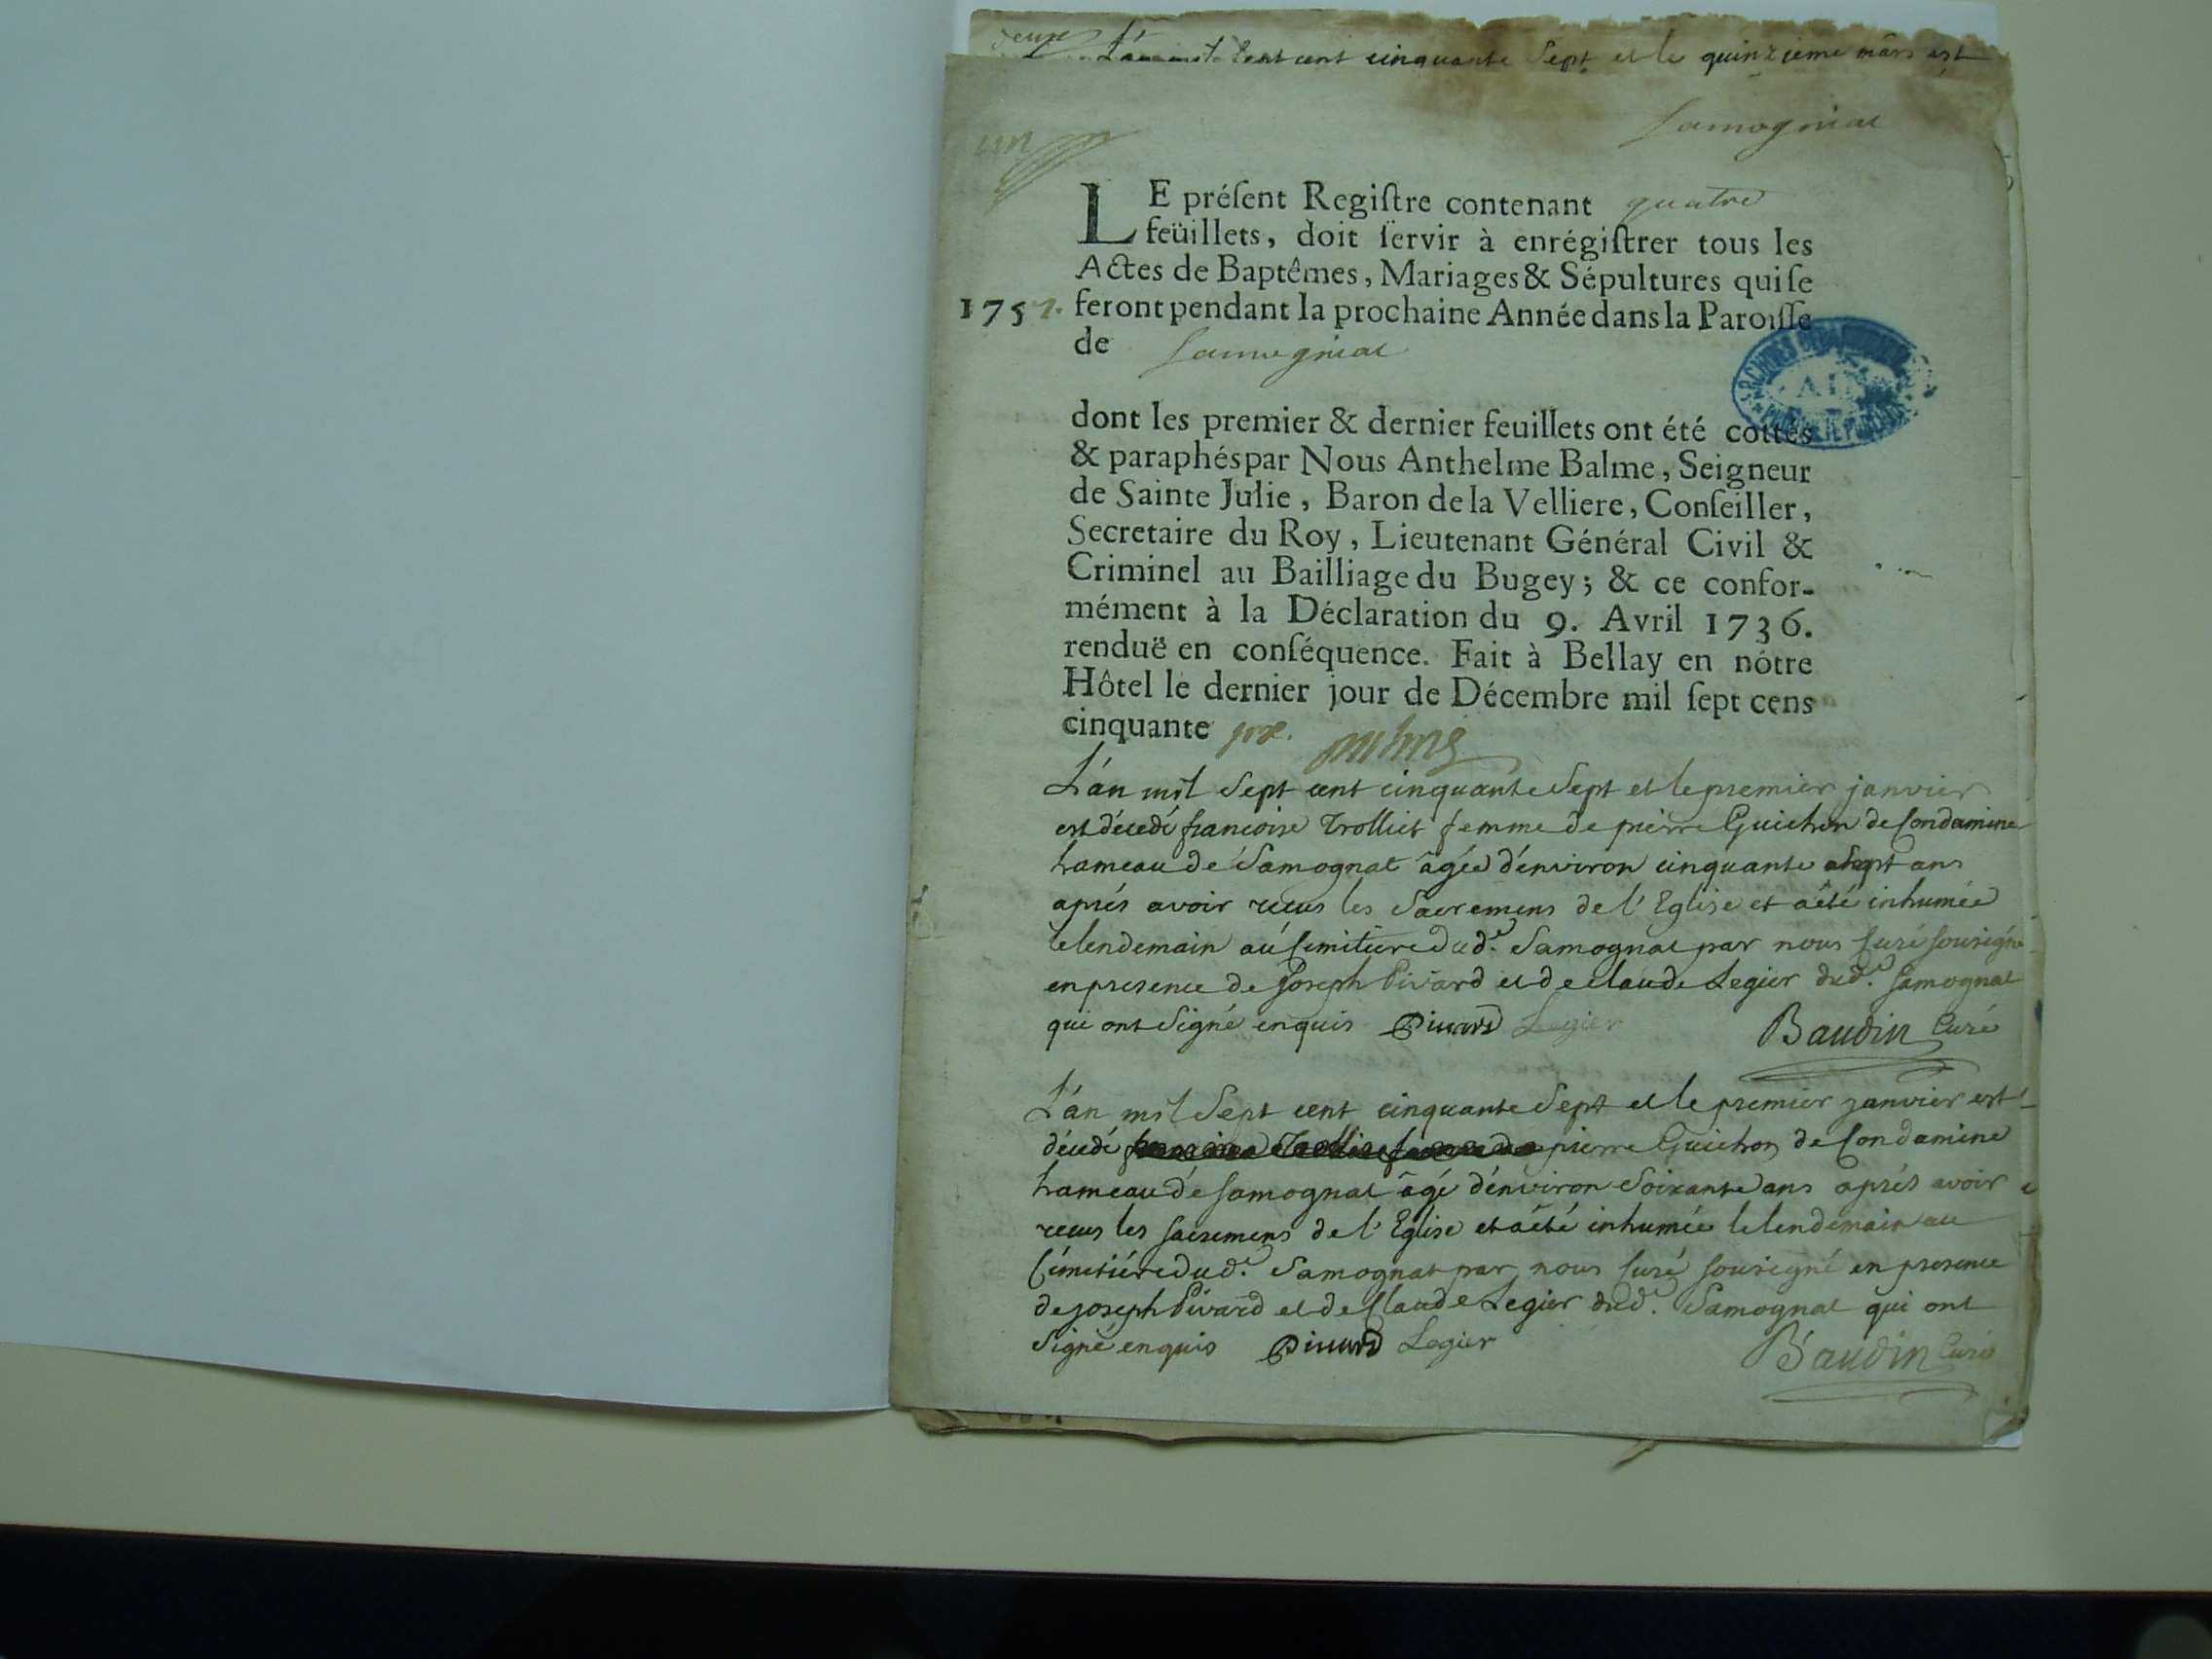 deux
L'an mil sept cent cinquante Sept et le quinzieme mars est
un
Samogniat
LE préſent Regiſtre contenant quatre
feüillets, doit ſervir à enrégiſtrer tous les
Actes de Baptêmes, Mariages & Sépultures qui ſe
1757. feront pendant la prochaine Année dans la Paroiſſe
de Samogniat
ARCHIVES DEPARTEMENTALES
AIN
dont les premier & dernier feuillets ont été cottés
& paraphés par Nous Anthelme Balme, Seigneur
de Sainte Julie, Baron de la Velliere, Conſeiller,
Secretaire du Roy, Lieutenant Général Civil &
Criminel au Bailliage du Bugey; & ce confor-
mément à la Déclaration du 9. Avril 1736.
renduë en conſéquence. Fait à Bellay en nôtre
Hôtel le dernier jour de Décembre mil ſept cens
cinquante six.
L'án mil Sept cent cinquante Sept et le premier janvier
est décedé francoise Trolliet femme de pierre Guichon de Condamine
hameau de Samognat âgée d'environ cinquante Sept ans
aprés avoir recus les Sacremens de l'Eglise et a été inhumée
le lendemain au Cimitiere dud.e Samognat par nous Curé sousigné
en presence de Joseph Pivard et de claude Legier dud.e Samognat
qui ont Signé enquis Pivard Legier Baudin Curé
L'án mil Sept cent cinquante Sept et le premier janvier est
décedé francoise Trolliet femme de pierre Guichon de Condamine
hameau de Samognat âgé d'environ Soixante ans aprés avoir
recus les sacremens de l'Eglise et a été inhumée le lendemain au
Cimetiére dud.e Samognat par nous Curé sousigné en presence
de joseph Pivard et de Claude Legier dud.e Samognat qui ont
Signé enquis Pivard Legier Baudin Curé